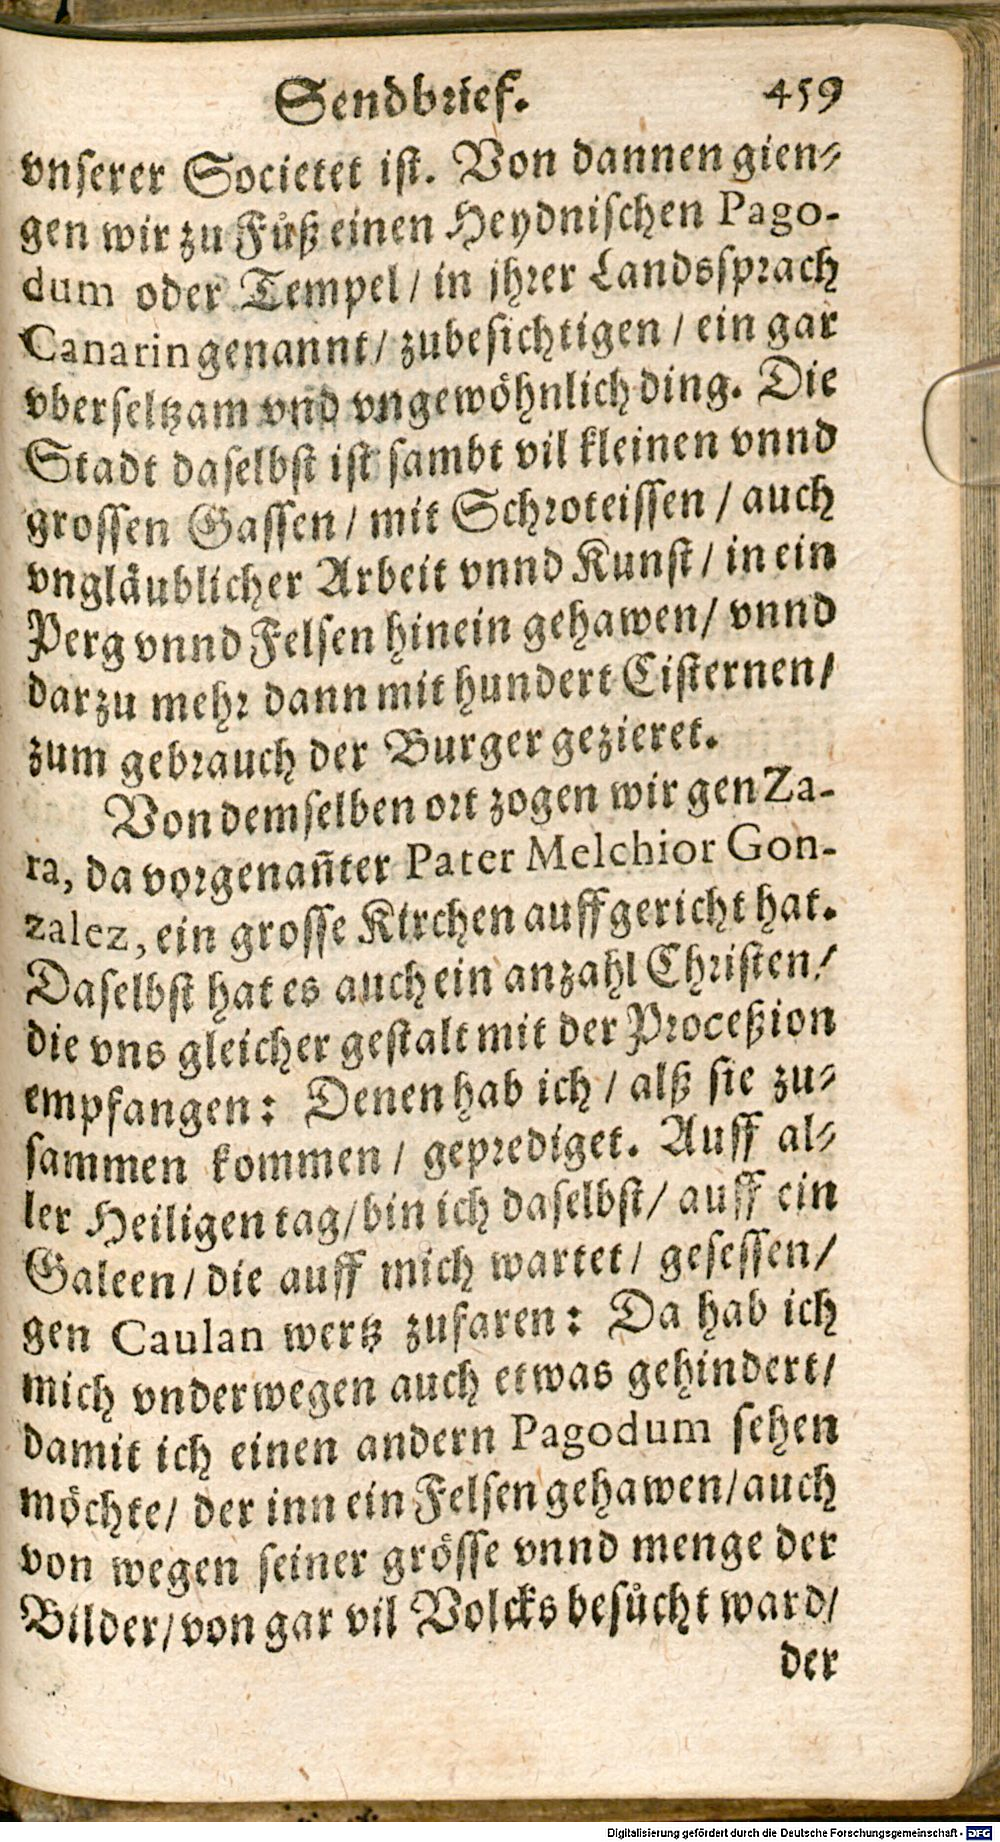 Sendbrief. 459
vnserer Societet ist. Von dannen gien⸗
gen wir zu Fůß einen Heydnischen Pago-
dum oder Tempel / in jhrer Landssprach
Canarin genannt / zubesichtigen / ein gar
vberseltzam vnd vngewöhnlich ding. Die
Stadt daselbst ist sambt vil kleinen vnnd
grossen Gassen / mit Schroteissen / auch
vngläublicher Arbeit vnnd Kunst / in ein
Perg vnnd Felsen hinein gehawen / vnnd
darzu mehr dann mit hundert Cisternen /
zum gebrauch der Burger gezieret.
Von demselben ort zogen wir gen Za-
ra, da vorgenañter Pater Melchior Gon-
zalez, ein grosse Kirchen auffgericht hat.
Daselbst hat es auch ein anzahl Christen /
die vns gleicher gestalt mit der Proceßion
empfangen: Denen hab ich / alß sie zu⸗
sammen kommen / geprediget. Auff al⸗
ler Heiligen tag / bin ich daselbst / auff ein
Galeen / die auff mich wartet / gesessen /
gen Caulan wertz zufaren: Da hab ich
mich vnderwegen auch etwas gehindert /
damit ich einen andern Pagodum sehen
möchte / der inn ein Felsen gehawen / auch
von wegen seiner grösse vnnd menge der
Bilder / von gar vil Volcks besůcht ward /
der
Digitalisierung gefördert durch die Deutsche Forschungsgemeinschaft - DFG